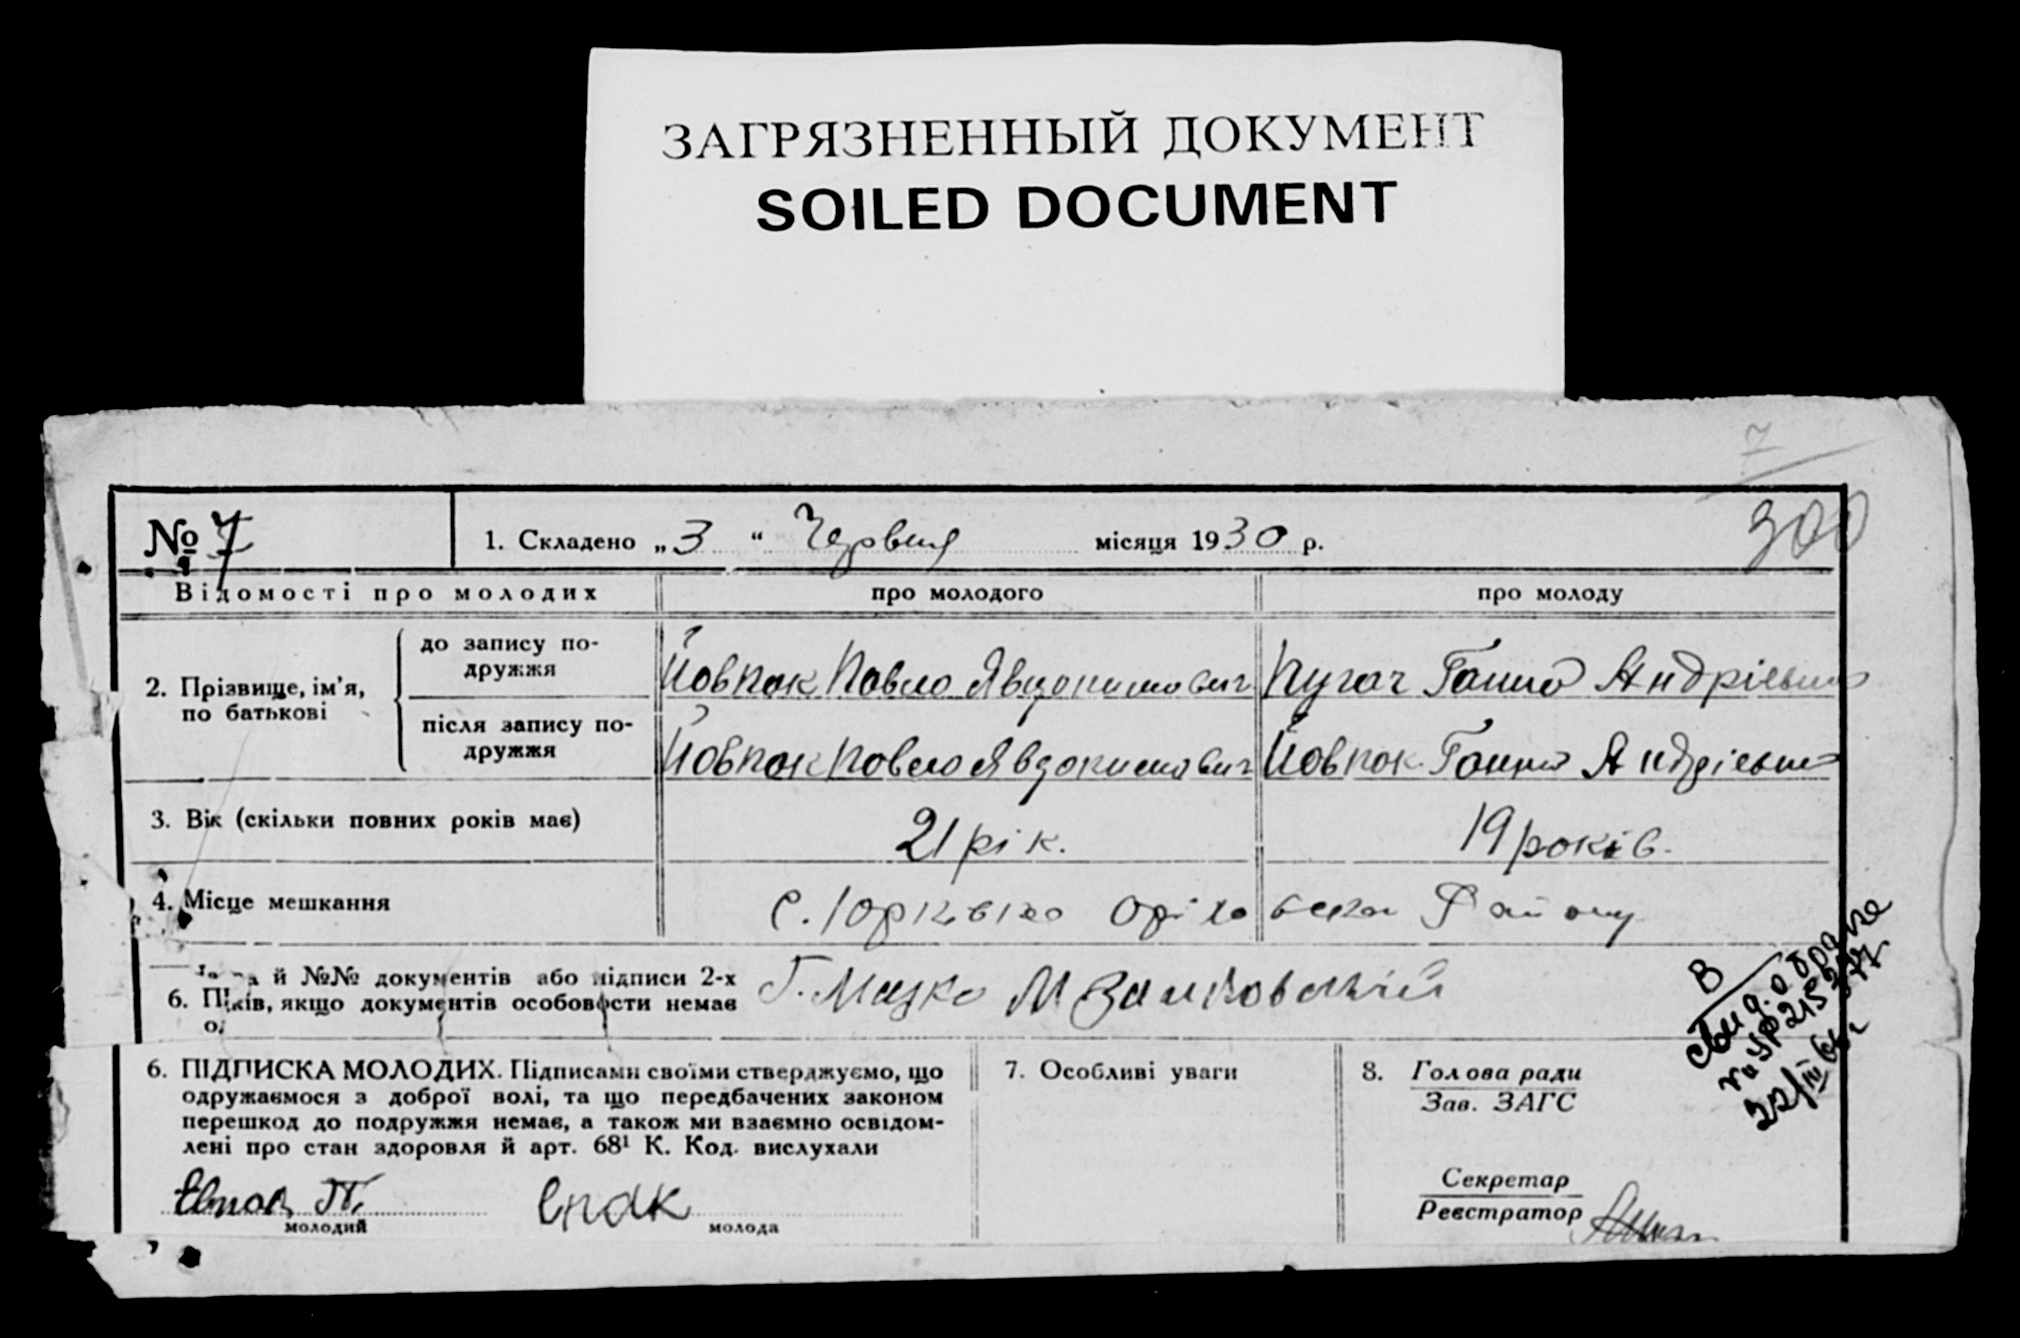 ЗАГРЯЗНЕННЫЙ ДОКУМЕНТ
SOILED DOCUMENT
7
300
№ 7
1. Складено „ 3 “ Червня місяця 1930 р.
Відомості про молодих
про молодого
про молоду
2. Прізвище, ім'я, по батькові
до запису по-
дружжя
Йовпак Павло Явдокимович
Пугач Ганна Андріевна
після запису по-
дружжя
Йовпак Павло Явдокимович
Йовпак Ганна Андріевна
3. Вік (скільки повних років має)
21 рік.
19 років.
4. Місце мешкання
с. Юрківка Оріховськ Району
й №№ документів або підписи 2-х
6. якщо документів особовости немає
Г. Мацко М
6. ПІДПИСКА МОЛОДИХ. Підписами своїми стверджуємо, що
одружаємося з доброї волі, та що передбачених законом
перешкод до подружжя немає, а також ми взаємно освідом-
лені про стан здоровля й арт. 68¹ К. Код. вислухали
молодий
молода
7. Особливі уваги
8. Голова ради
Зав. ЗАГС
Секретар
Реєстратор
В
о браке